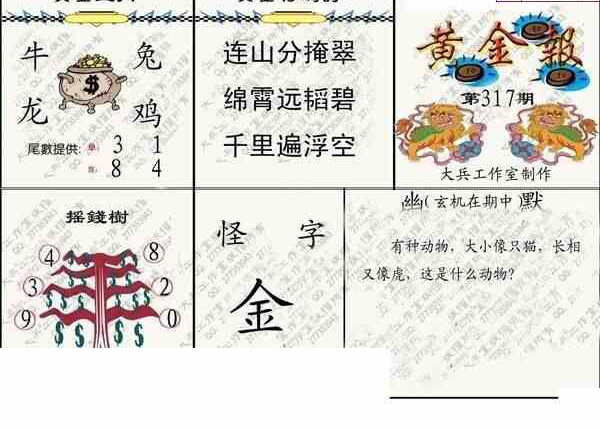 牛 兔
龙 鸡
尾數提供: 单: 3 1
双: 8 4
连山分掩翠
绵霄远韬碧
千里遍浮空
黄金報
第317期
大兵工作室制作
摇錢樹
4 8
3 2
9 0
怪 字
金
幽(玄机在期中)默
有种动物，大小像只猫，长相
又像虎，这是什么动物？